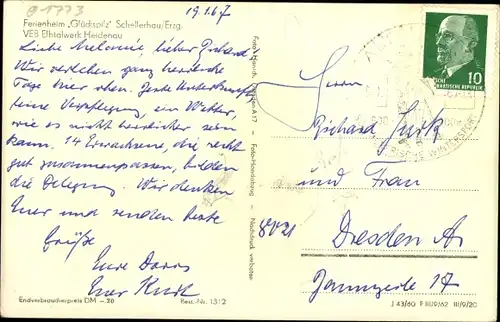 B 1773
Ferienheim „Glückspilz" Schellerhau/Erzg.
VEB Elbtalwerk Heidenau
19.1.67
Liebe Melanie, lieber Richard
Wir verleben ganz herrliche
Tage hier oben. Gute Unterkunft,
feine Verpflegung, ein Wetter,
wie es nicht herrlicher sein
kann. 14 Erwachsene, die recht
gut zusammenpassen, bilden
die Belegung. Wir denken
Euer und senden beste
Grüße
Eure Doris
Euer Kurt
Endverbraucherpreis DM -.20
Best.-Nr. 1312
Foto-Handabzug
Nachdruck verboten
10
DEUTSCHE DEMOKRATISCHE REPUBLIK
WINTERSPORT
Herrn
Richard
und Frau
8021
Dresden A.
17
J 43/60 P III/9/62 III/9/20